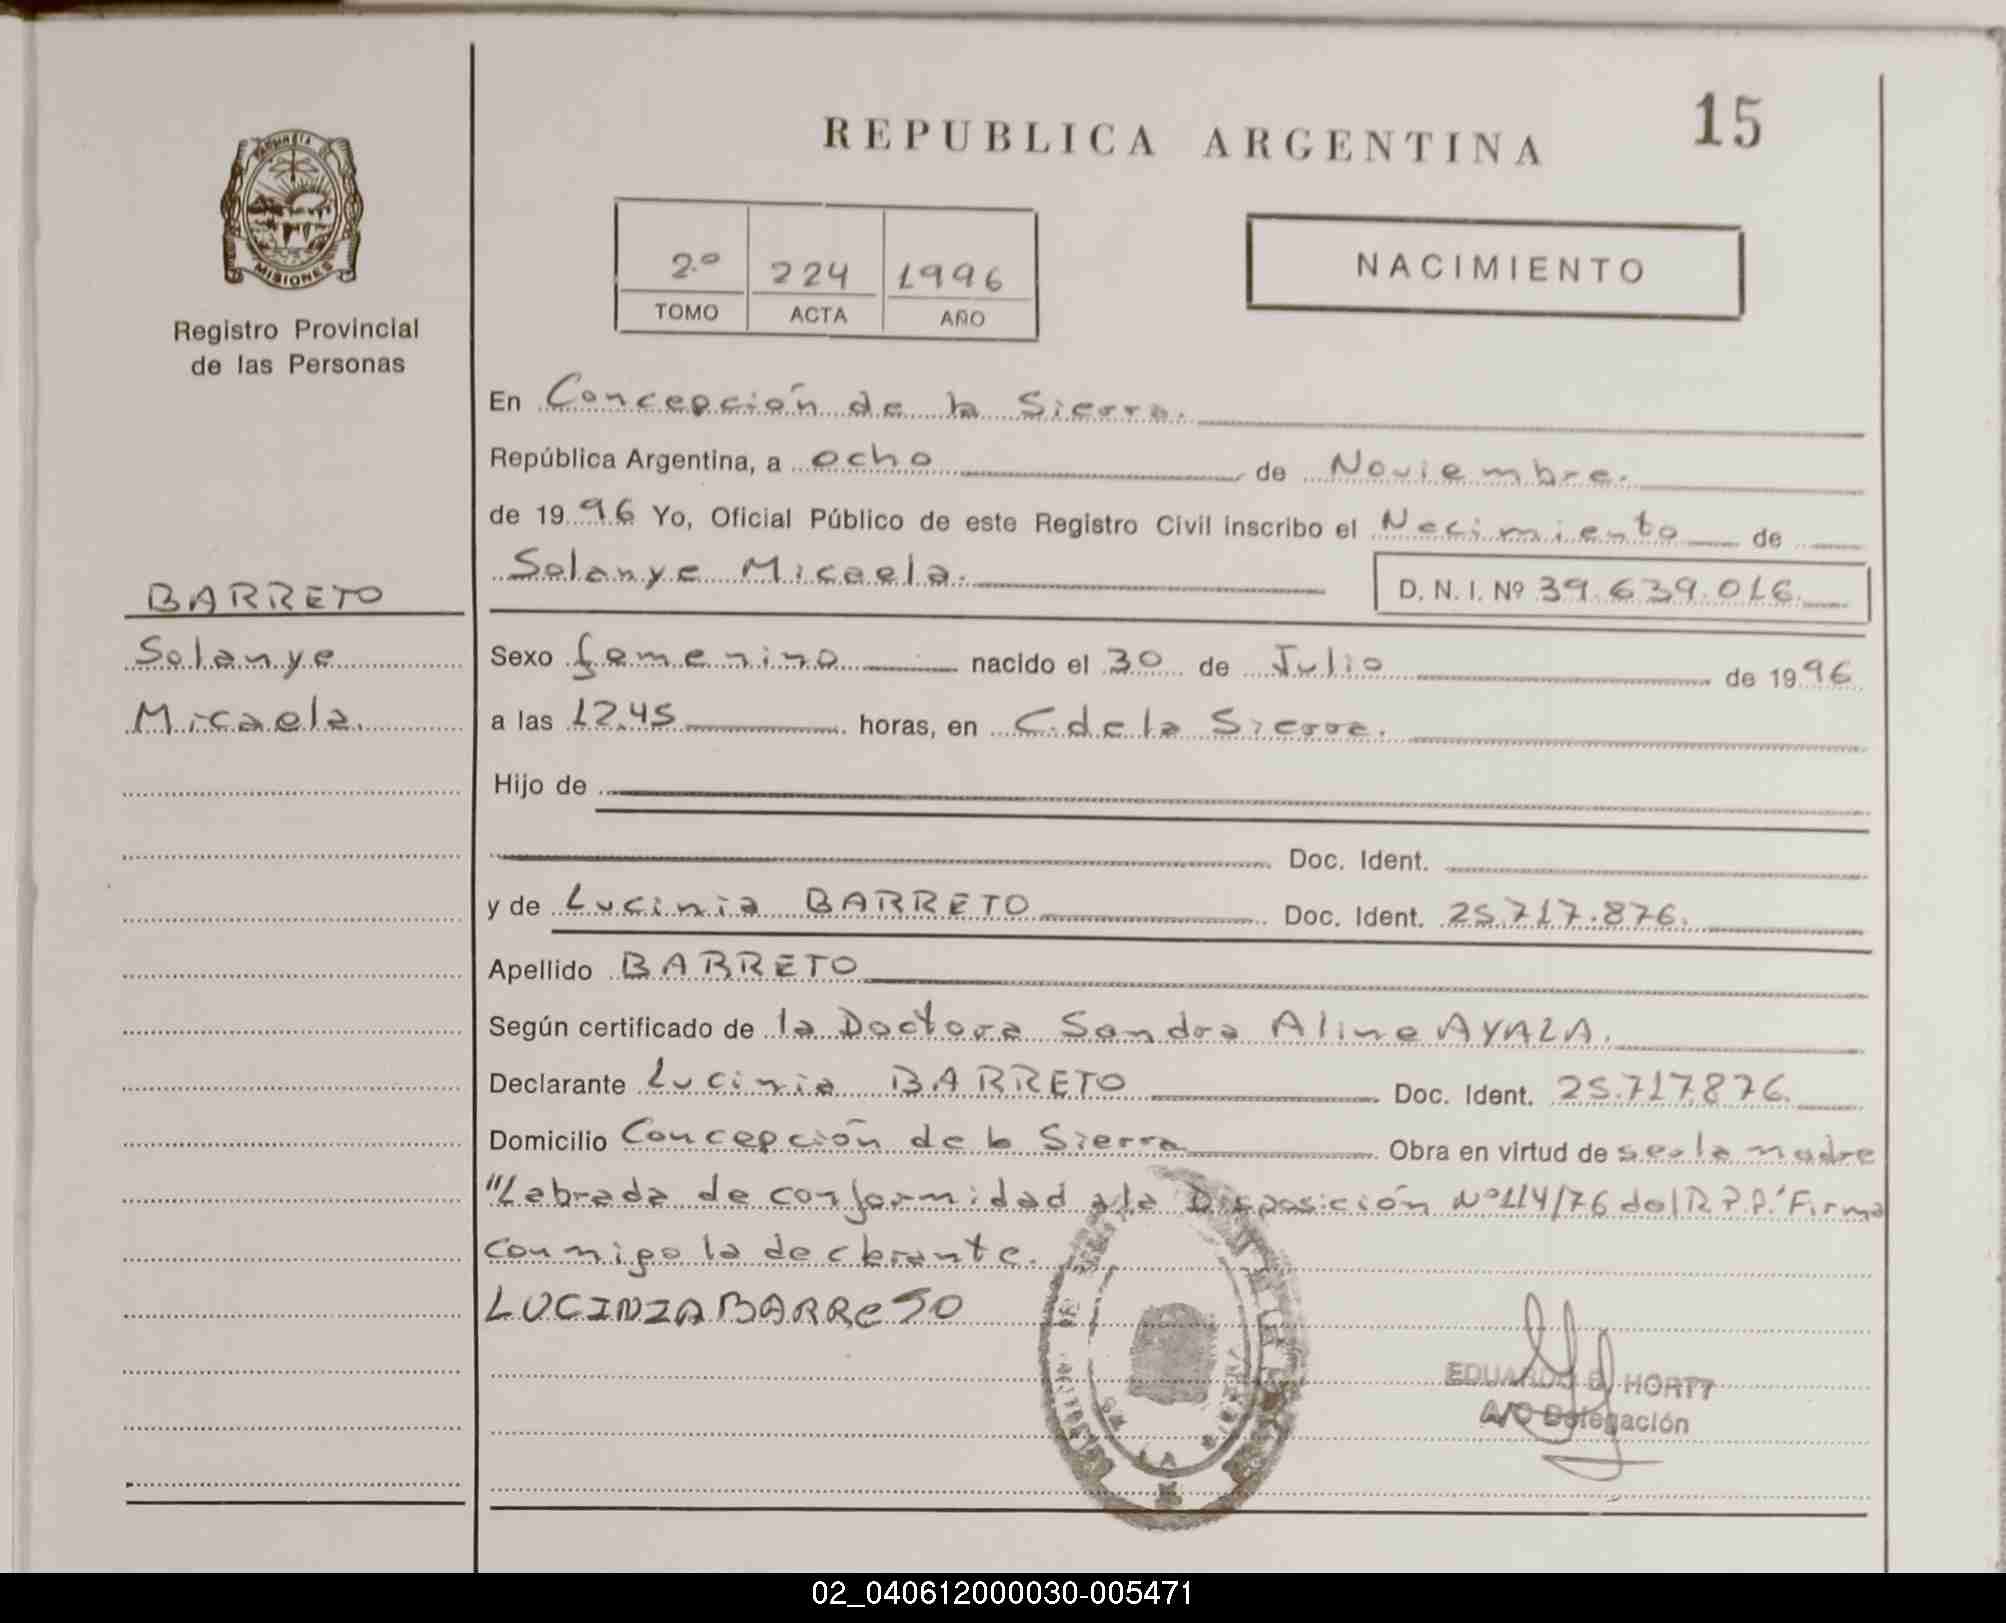 REPUBLICA ARGENTINA
15
PROVINCIA DE
MISIONES
Registro Provincial
de las Personas
2.º 224 1996
TOMO ACTA AÑO
NACIMIENTO
En Concepción de la Sierra.
República Argentina, a ocho de Noviembre.
de 1996 Yo, Oficial Público de este Registro Civil inscribo el Nacimiento de
Solanye Micaela.
D. N. I. Nº 39.639.016.
BARRETO
Solanye
Micaela.
Sexo femenino nacido el 30 de Julio de 1996
a las 12.45 horas, en C. de la Sierra.
Hijo de
Doc. Ident.
y de Lucinia BARRETO Doc. Ident. 25.717.876.
Apellido BARRETO
Según certificado de la Doctora Sandra Aline AYALA.
Declarante Lucinia BARRETO Doc. Ident. 25.717.876.
Domicilio Concepción de la Sierra Obra en virtud de ser la madre
"Labrada de conformidad a la Disposición Nº 114/76 del R.P.P." Firma
conmigo la declarante.
LUCINIA BARRETO
EDUARDO HORTT
A/C Delegación
02_040612000030-005471